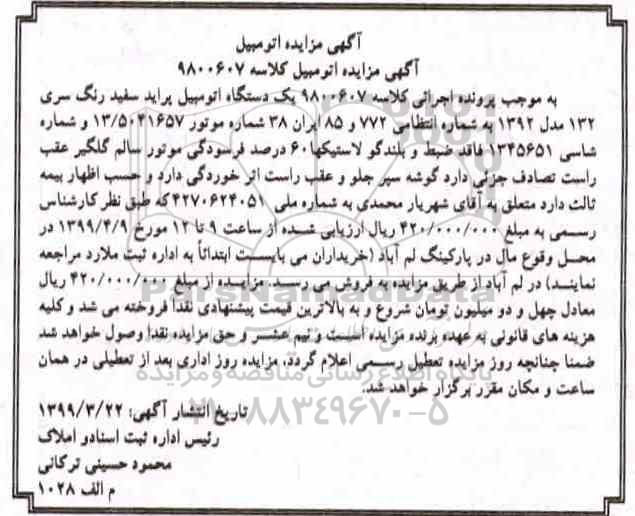 آگهی مزایده اتومبیل
آگهی مزایده اتومبیل کلاسه ۹۸۰۰۶۰۷
به موجب پرونده اجرائی کلاسه ۹۸۰۰۶۰۷ یک دستگاه اتومبیل پراید سفید رنگ سری
۱۳۲ مدل ۱۳۹۲ به شماره انتظامی ۷۷۲ و ۸۵ ایران ۳۸ شماره موتور ۱۳/۵۰۴۱۶۵۷ و شماره
شاسی ۱۳۴۵۶۵۱ فاقد ضبط و بلندگو لاستیکها ۶۰ درصد فرسودگی موتور سالم گلگیر عقب
راست تصادف جزئی دارد گوشه سپر جلو و عقب راست اثر خوردگی دارد و حسب اظهار بیمه
ثالث دارد متعلق به آقای شهریار محمدی به شماره ملی ۴۲۷۰۶۲۴۰۵۱ که طبق نظر کارشناس
رسمی به مبلغ ۴۲۰/۰۰۰/۰۰۰ ریال ارزیابی شده از ساعت ۹ تا ۱۲ مورخ ۱۳۹۹/۴/۹ در
محل وقوع مال در پارکینگ لم آباد (خریداران می بایست ابتدائاً به اداره ثبت ملارد مراجعه
نمایند) در لم آباد از طریق مزایده به فروش می رسد. مزایده از مبلغ ۴۲۰/۰۰۰/۰۰۰ ریال
معادل چهل و دو میلیون تومان شروع و به بالاترین قیمت پیشنهادی نقداً فروخته می شد و کلیه
هزینه های قانونی به عهده برنده مزایده است و نیم عشر و حق مزایده نقداً وصول خواهد شد
ضمنا چنانچه روز مزایده تعطیل رسمی اعلام گردد، مزایده روز اداری بعد از تعطیلی در همان
ساعت و مکان مقرر برگزار خواهد شد.
تاریخ انتشار آگهی: ۱۳۹۹/۳/۲۲
رئیس اداره ثبت اسناد و املاک
محمود حسینی ترکانی
م الف ۱۰۲۸
ParsNamadData
پایگاه اطلاع رسانی مناقصه و مزایده
۰۲۱-۸۸۳۴۹۶۷۰-۵